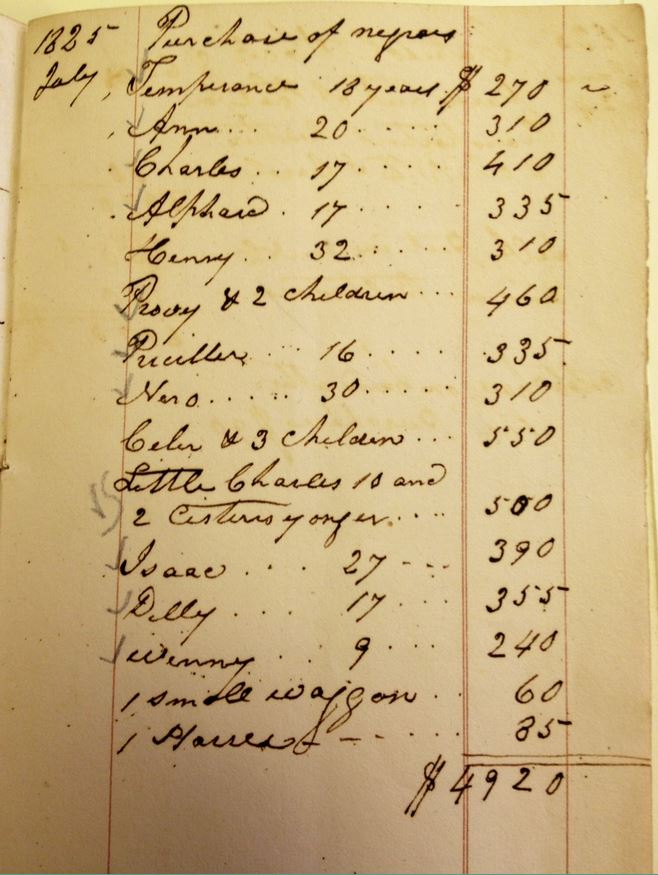 1825 Purchase of negroes
July Temperance 18 years $ 270
Ann 20 310
Charles 17 410
Alphard 17 335
Henny 32 310
& 2 children 460
Priciller 16 335
Nero 30 310
Celer & 3 Children 550
Little Charles 10 and
2 Cisters yonger 500
Isaac 27 390
Dilly 17 355
Winny 9 240
1 small waggon 60
1 85
$ 4920